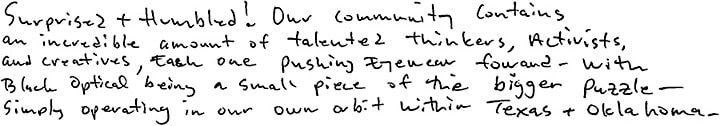 Surprised + Humbled! Our community contains
an incredible amount of talented thinkers, Activists,
and creatives, Each one pushing Eyewear foward - with
Black Optical being a small piece of the bigger puzzle —
Simply operating in our own orbit within Texas + Oklahoma -